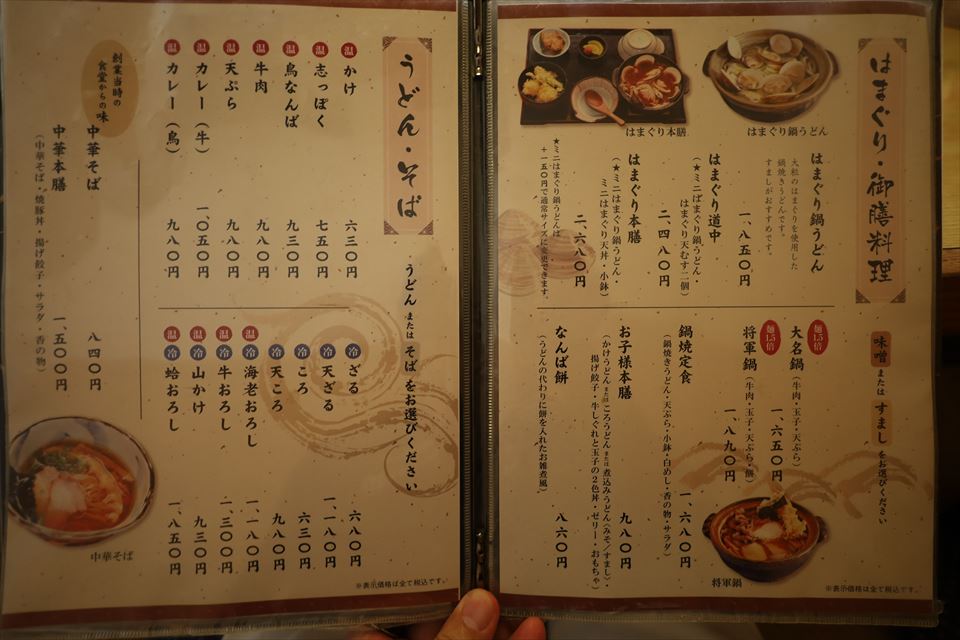 はまぐり・御膳料理
はまぐり鍋うどん
はまぐり本膳
はまぐり鍋うどん
大粒のはまぐりを使用した
鍋焼きうどんです。
すましがおすすめです。
一、八五〇円
はまぐり道中
(★ミニはまぐり鍋うどん・
はまぐり天むす二個)
二、四八〇円
はまぐり本膳
(★ミニはまぐり鍋うどん・
ミニはまぐり天丼・小鉢)
二、六八〇円
★ミニはまぐり鍋うどんは
+一五〇円で通常サイズに変更できます。
味噌 または すまし をお選びください
麺1.5倍
大名鍋
(牛肉・玉子・天ぷら)
一、六五〇円
麺1.5倍
将軍鍋
(牛肉・玉子・天ぷら・餅)
一、八九〇円
鍋焼定食
(鍋焼きうどん・天ぷら・小鉢・白めし・香の物・サラダ)
一、六八〇円
お子様本膳
(かけうどん または ころうどん または 煮込みうどん(みそ/すまし)・
揚げ餃子・牛しぐれと玉子の2色丼・ゼリー・おもちゃ)
九八〇円
なんば餅
(うどんの代わりに餅を入れたお雑煮風)
八六〇円
将軍鍋
※表示価格は全て税込です。
うどん・そば
うどん または そば をお選びください
温 かけ 六三〇円
温 志っぽく 七五〇円
温 鳥なんば 九三〇円
温 牛肉 九八〇円
温 天ぷら 九八〇円
温 カレー(牛) 一、〇五〇円
温 カレー(鳥) 九八〇円
冷 ざる 六八〇円
冷 天ざる 一、一八〇円
冷 ころ 六三〇円
冷 天ころ 九八〇円
温 冷 海老おろし 一、一八〇円
温 冷 牛おろし 一、三〇〇円
温 冷 山かけ 九三〇円
温 冷 蛤おろし 一、八五〇円
創業当時の
食堂からの味
中華そば 八四〇円
中華本膳
(中華そば・焼豚丼・揚げ餃子・サラダ・香の物)
一、五〇〇円
中華そば
※表示価格は全て税込です。